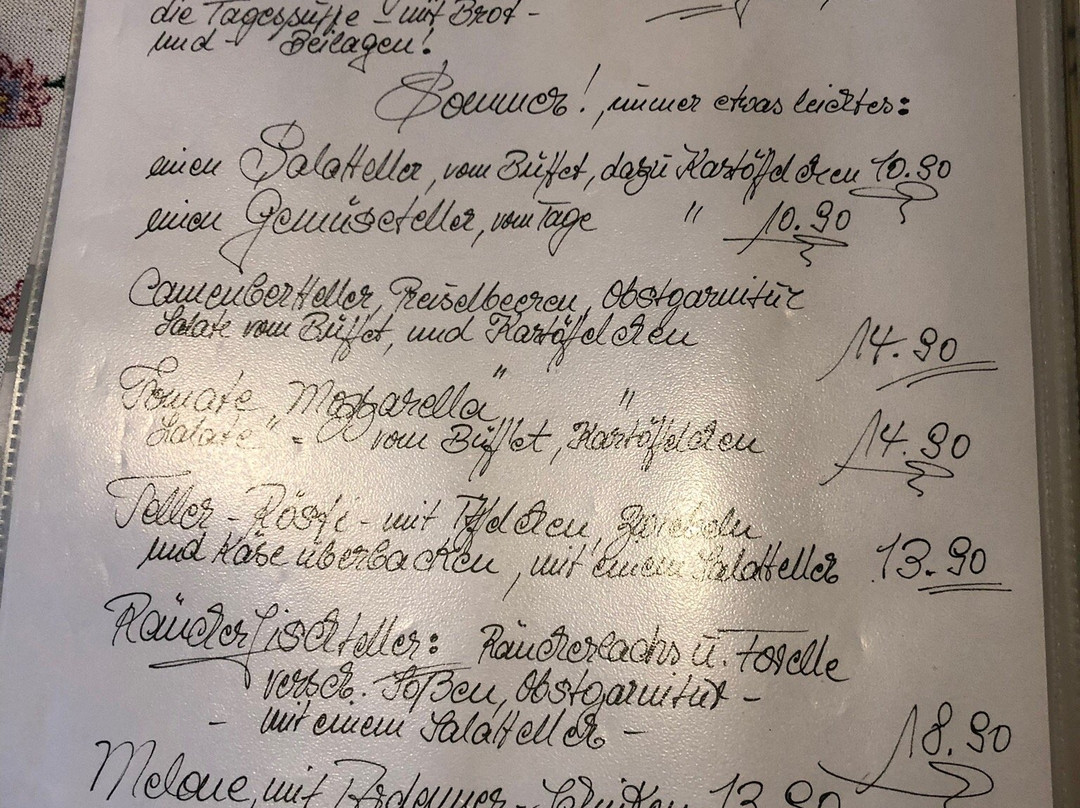 die Tagessuppe - mit Brot -
und - Beilagen!
Sommer!, immer etwas leichtes:
einen Salatteller, vom Büffet, dazu Kartöffelchen 10.90
einen Gemüseteller, vom Tage " 10.90
Camembertteller, Preiselbeeren, Obstgarnitür
Salate vom Büffet, und Kartöffelchen
14.90
Tomate "Mozzarella" "
Salate" - vom Büffet, Kartöffelchen 14.90
Teller - Rösti - mit Zwiebeln
und Käse überbacken, mit einem Salatteller 13.90
Räucherfischteller: Räucherlachs u. Forelle
versch. Soßen, Obstgarnitür -
- mit einem Salatteller - 18.90
Melone, mit Ardenner - Schinken 13.90